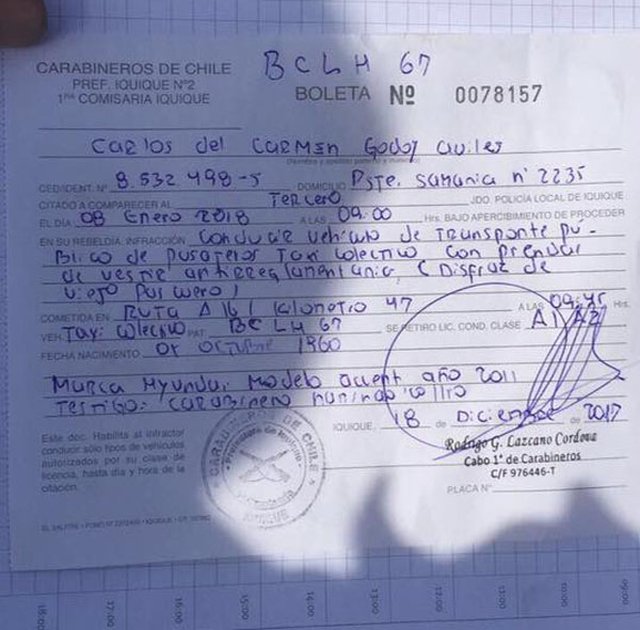 BCLH 67
CARABINEROS DE CHILE
PREF. IQUIQUE Nº2
1ra COMISARIA IQUIQUE
BOLETA Nº 0078157
Carlos del Carmen Godoy Aviles
CED/IDENT. Nº 8.532.498-5 DOMICILIO Pste. Sumaria nº 2235
CITADO A COMPARECER AL Tercero JDO. POLICÍA LOCAL DE IQUIQUE.
EL DÍA 08 Enero 2018 A LAS 09:00 Hrs. BAJO APERCIBIMIENTO DE PROCEDER
EN SU REBELDÍA. INFRACCIÓN Conducir vehículo de Transporte pú-
blico de pasajeros Taxi colectivo con prendas
de vestir antirreglamentaria, (Disfraz de
viejo pascuero)
COMETIDA EN Ruta A 16 / kilometro 47 A LAS 09:45 Hrs.
VEH. Taxi colectivo PAT. BCLH 67 SE RETIRO LIC. COND. CLASE A1 A2
FECHA NACIMIENTO 01 octubre 1960
Marca Hyundai Modelo accent año 2011
Testigo: Carabinero
IQUIQUE, 18 de Diciembre de 2017
Este doc. Habilita al infractor
conducir sólo tipos de vehículos
autorizados por su clase de
licencia, hasta día y hora de la
citación.
Rodrigo G. Lazcano Cordova
Cabo 1° de Carabineros
C/F 976446-T
PLACA Nº
CARABINEROS DE CHILE
IQUIQUE
18:00 17:00 16:00 15:00 14:00 13:00 12:00 11:00 10:00 09:00